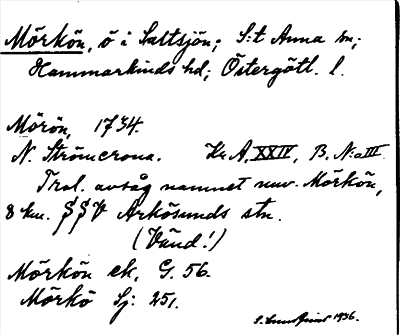 Mörkön, ö i Saltsjön; S:t Anna sn;
Hammarkinds hd; Östergötl. l.
Mörön, 1734.
N. Strömcrona. Kr. A, XXIV, B. N:o III.
Trol. avsåg namnet nuv. Mörkön,
8 km. SSV Arkösunds stn.
(Vänd!)
Mörkön ek. G. 56.
Mörkö Sj: 251.
1936.